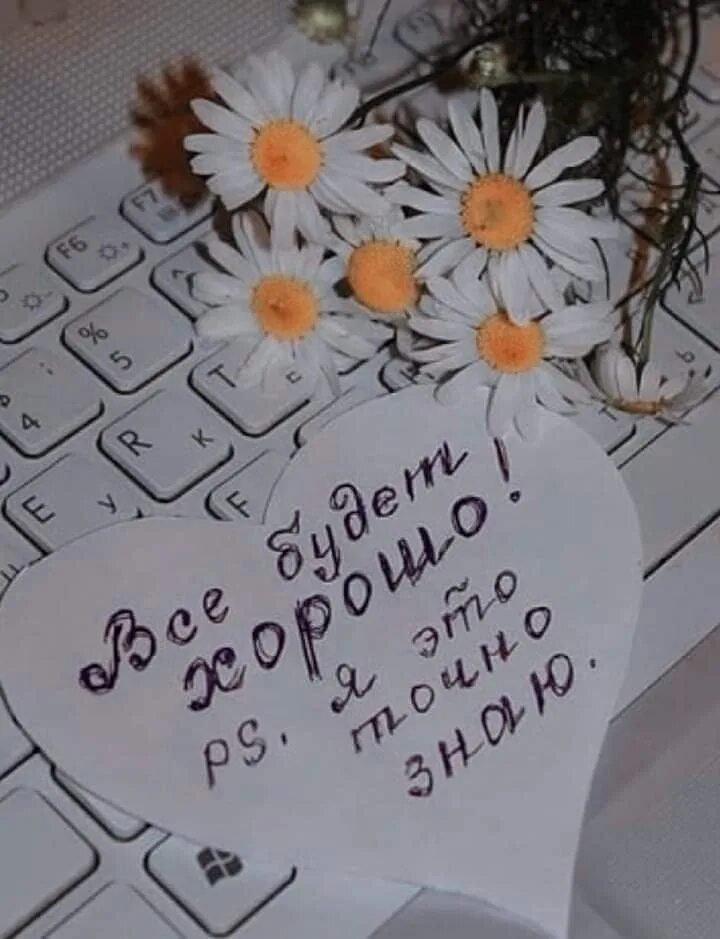 F7
F6
%
5
4
T
Е
R
К
Ь
E
У
F
Все будет
хорошо!
PS. я это
точно
знаю.